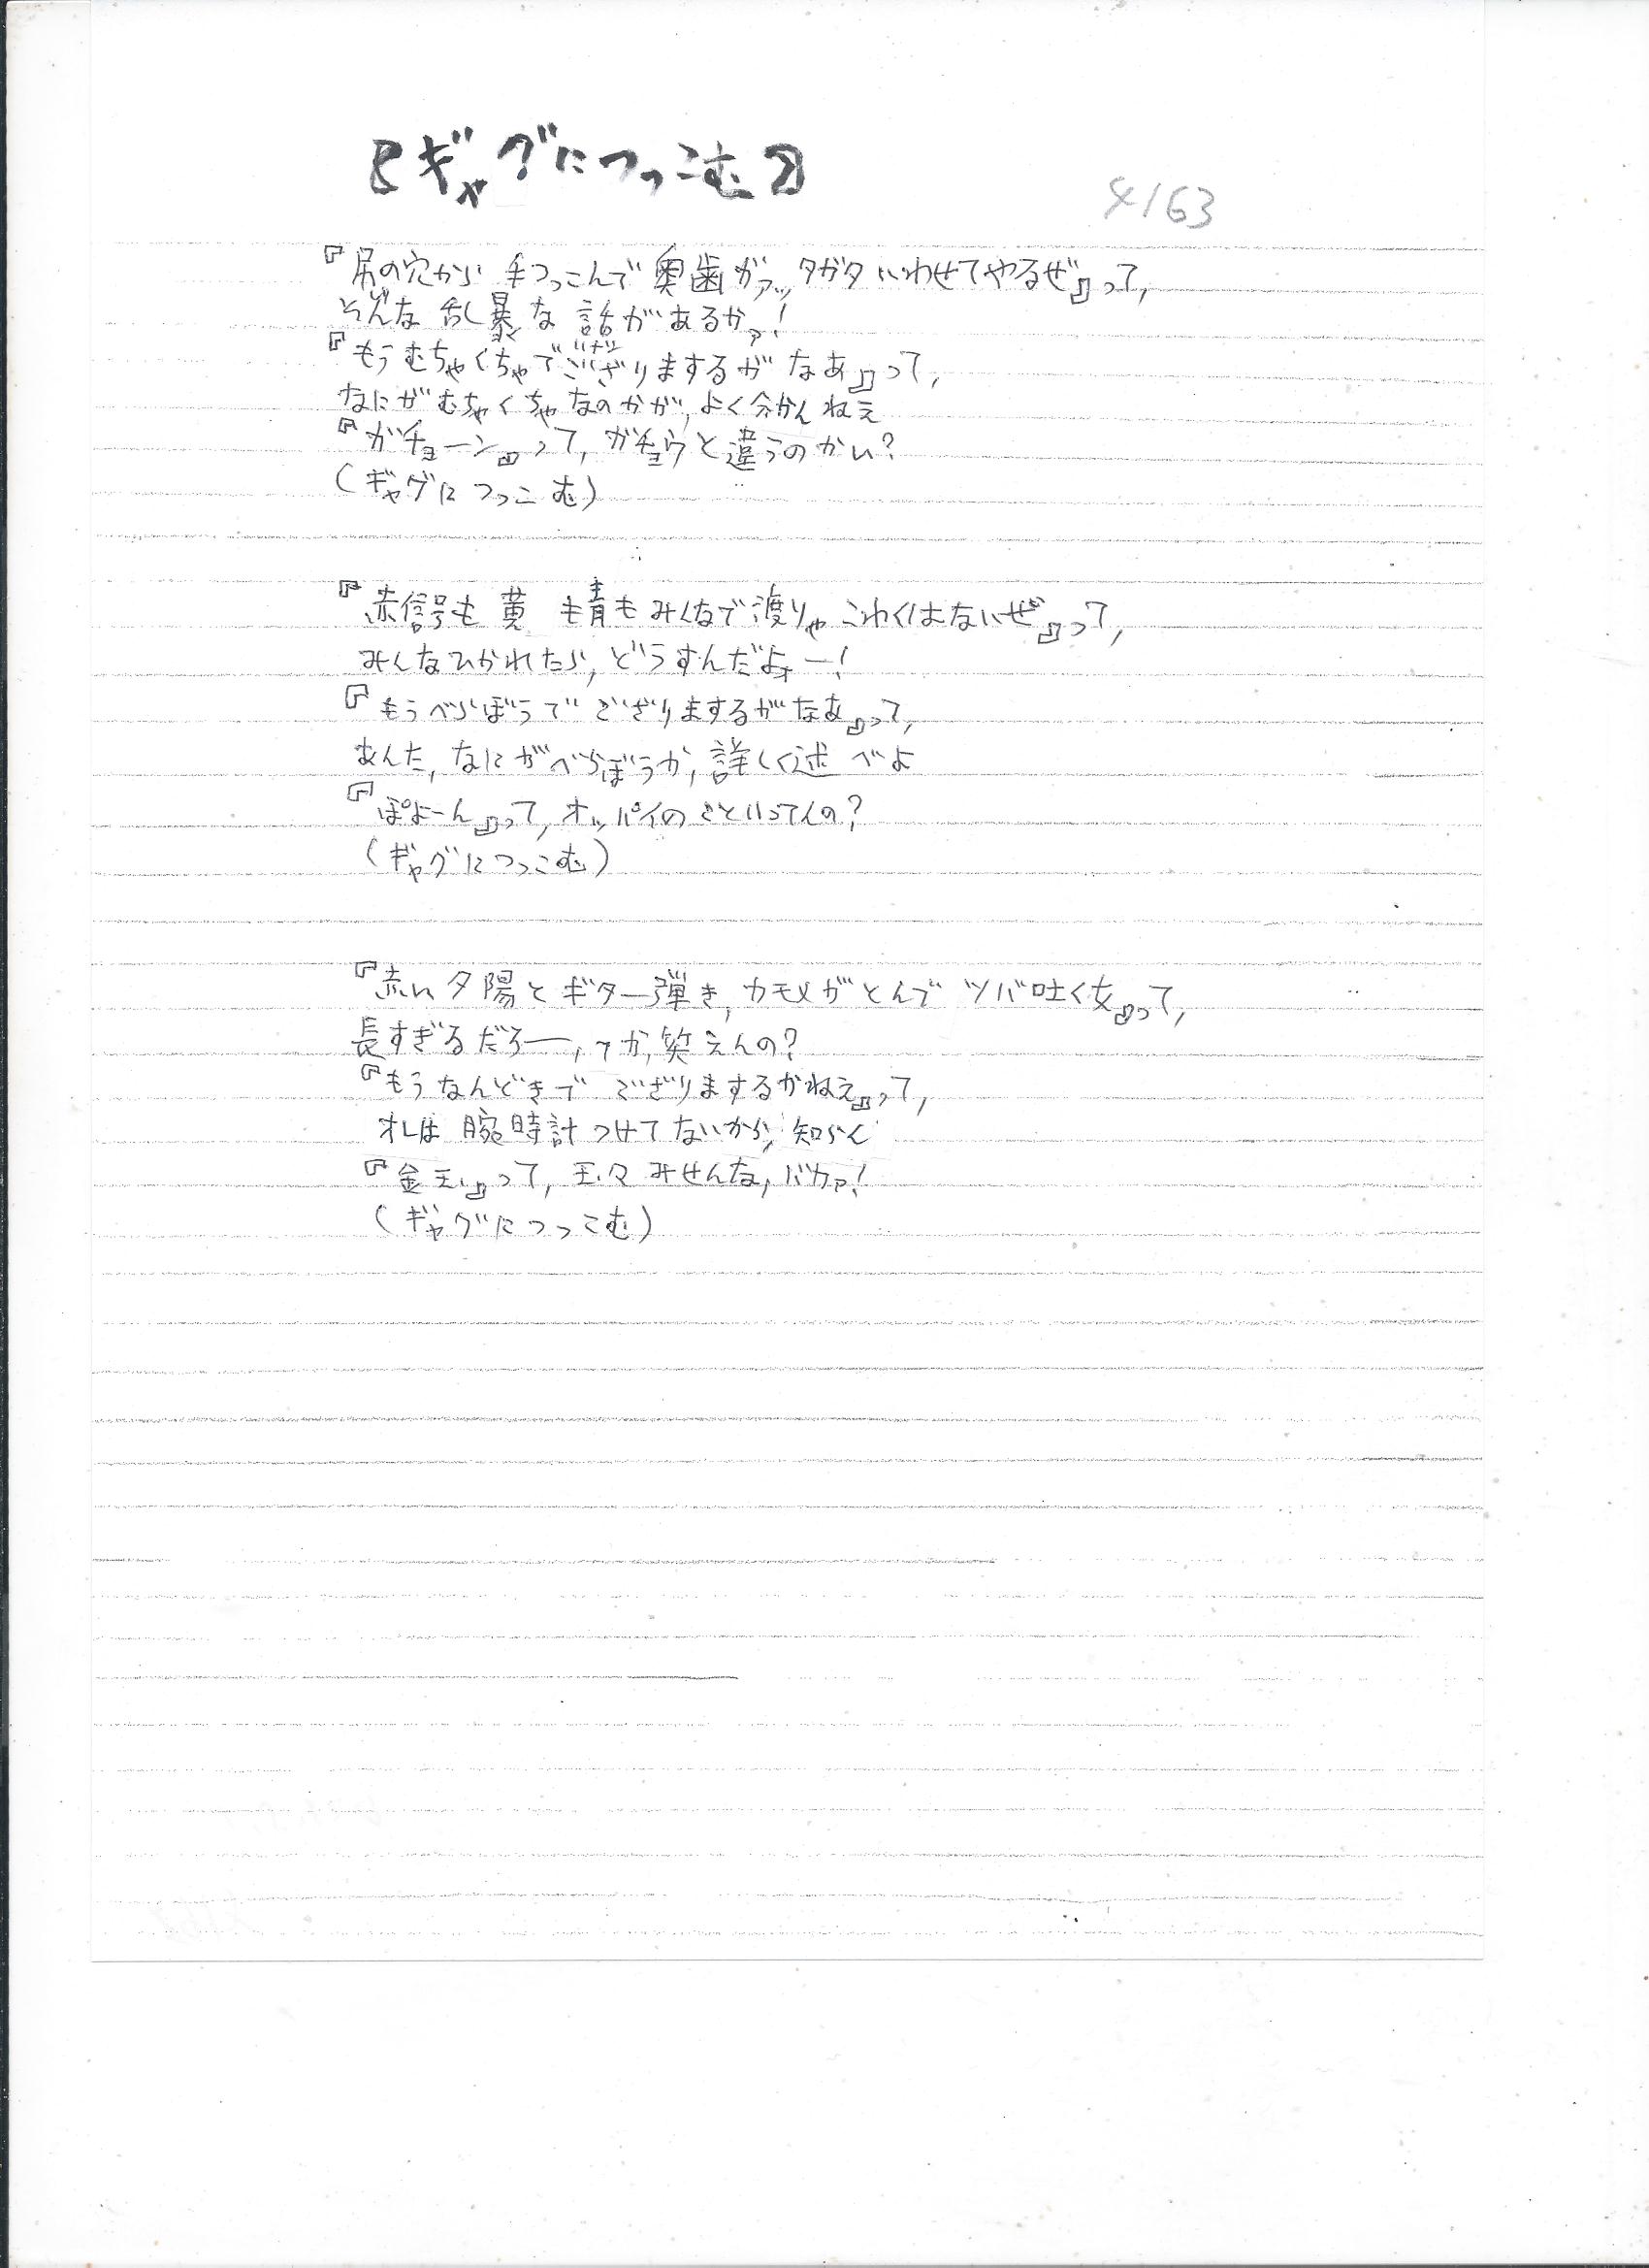 『ギャグにつっこむ』
4163
『尻の穴から手つっこんで奥歯がァッ、タガタいわせてやるぜ』って,
そんな乱暴な話があるかァ!
『もうむちゃくちゃでござりまするがなあ』って,
なにがむちゃくちゃなのかが,よく分かんねえ
『ガチョーン』って,ガチョウと違うのかい?
(ギャグにつっこむ)
『赤信号も黄も青もみんなで渡りゃこわくはないぜ』って,
みんなひかれたら,どうすんだよォー!
『もうべらぼうでござりまするがなあ』って,
あんた,なにがべらぼうか,詳しく述べよ
『ぽよーん』って,オッパイのこといってんの?
(ギャグにつっこむ)
『赤い夕陽とギター弾き,カモメがとんでツバ吐く女』って,
長すぎるだろー,てか,笑えんの?
『もうなんどきでござりまするかねえ』って,
オレは腕時計つけてないから,知らん
『金玉』って,玉々みせんな,バカァ!
(ギャグにつっこむ)